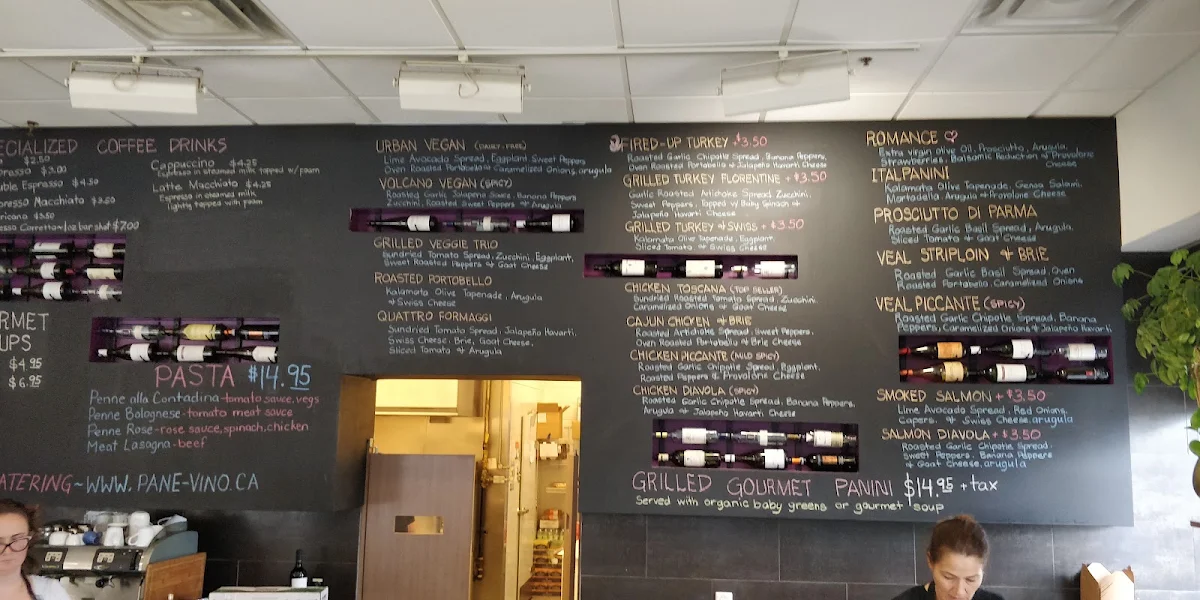 ECIALIZED COFFEE DRINKS
$2.50
presso $3.00
uble Espresso $4.50
presso Macchiato $3.50
ricano $3.50
esso Corretto-1oz bar shot $7.00
Cappuccino $4.25
Espresso in steamed milk topped w/foam
Latte Macchiato $4.25
Espresso in steamed milk
lightly topped with foam
RMET
UPS
$4.95
$6.95
PASTA $14.95
Penne alla Contadina-tomato sauce, vegs
Penne Bolognese-tomato meat sauce
Penne Rose-rose sauce, spinach, chicken
Meat Lasagna-beef
ATERING~WWW.PANE-VINO.CA
URBAN VEGAN (DAIRY-FREE)
Lime Avocado Spread, Eggplant, Sweet Peppers
Oven Roasted Portobello Caramelized Onions, arugula
VOLCANO VEGAN (SPICY)
Roasted Garlic Jalapeno Sauce, Banana Peppers
Zucchini, Roasted Sweet Peppers & Arugula
GRILLED VEGGIE TRIO
Sundried Tomato Spread, Zucchini, Eggplant,
Sweet Roasted Peppers & Goat Cheese
ROASTED PORTOBELLO
Kalamata Olive Tapenade, Arugula
& Swiss Cheese
QUATTRO FORMAGGI
Sundried Tomato Spread, Jalapeño Havarti,
Swiss Cheese, Brie, Goat Cheese,
Sliced Tomato & Arugula
FIRED-UP TURKEY $3.50
Roasted Garlic Chipotle Spread, Banana Peppers,
Oven Roasted Portobello & Jalapeño Havarti Cheese
GRILLED TURKEY FLORENTINE + $3.50
Garlic Roasted Artichoke Spread Zucchini,
Sweet Peppers, Topped w/ Baby Spinach &
Jalapeño Havarti Cheese
GRILLED TURKEY & SWISS + $3.50
Kalamata Olive Tapenade, Eggplant,
Sliced Tomato & Swiss Cheese
CHICKEN TOSCANA (TOP SELLER)
Sundried Roasted Tomato Spread, Zucchini,
Caramelized Onions & Goat Cheese
CAJUN CHICKEN & BRIE
Roasted Artichoke Spread, Sweet Peppers,
Oven Roasted Portobello & Brie Cheese
CHICKEN PICCANTE (MILD SPICY)
Roasted Garlic Chipotle Spread, Eggplant,
Roasted Peppers & Provolone Cheese
CHICKEN DIAVOLA (SPICY)
Roasted Garlic Chipotle Spread, Banana Peppers,
Arugula & Jalapeño Havarti Cheese
GRILLED GOURMET PANINI $14.95 + tax
Served with organic baby greens or gourmet soup
ROMANCE ♡
Extra virgin olive Oil, Prosciutto, Arugula,
Strawberries, Balsamic Reduction & Provolone
Cheese
ITALPANINI
Kalamata Olive Tapenade, Genoa Salami,
Mortadella, Arugula & Provolone Cheese
PROSCIUTTO DI PARMA
Roasted Garlic Basil Spread, Arugula,
Sliced Tomato & Goat Cheese
VEAL STRIPLOIN & BRIE
Roasted Garlic Basil Spread, Oven
Roasted Portobello, Caramelized Onions
VEAL PICCANTE (SPICY)
Roasted Garlic Chipotle Spread, Banana
Peppers, Caramelized Onions & Jalapeño Havarti
SMOKED SALMON + $3.50
Lime Avocado Spread, Red Onions,
Capers, & Swiss Cheese, arugula
SALMON DIAVOLA + $3.50
Roasted Garlic Chipotle Spread,
Sweet Peppers, Banana Peppers
& Goat Cheese, arugula